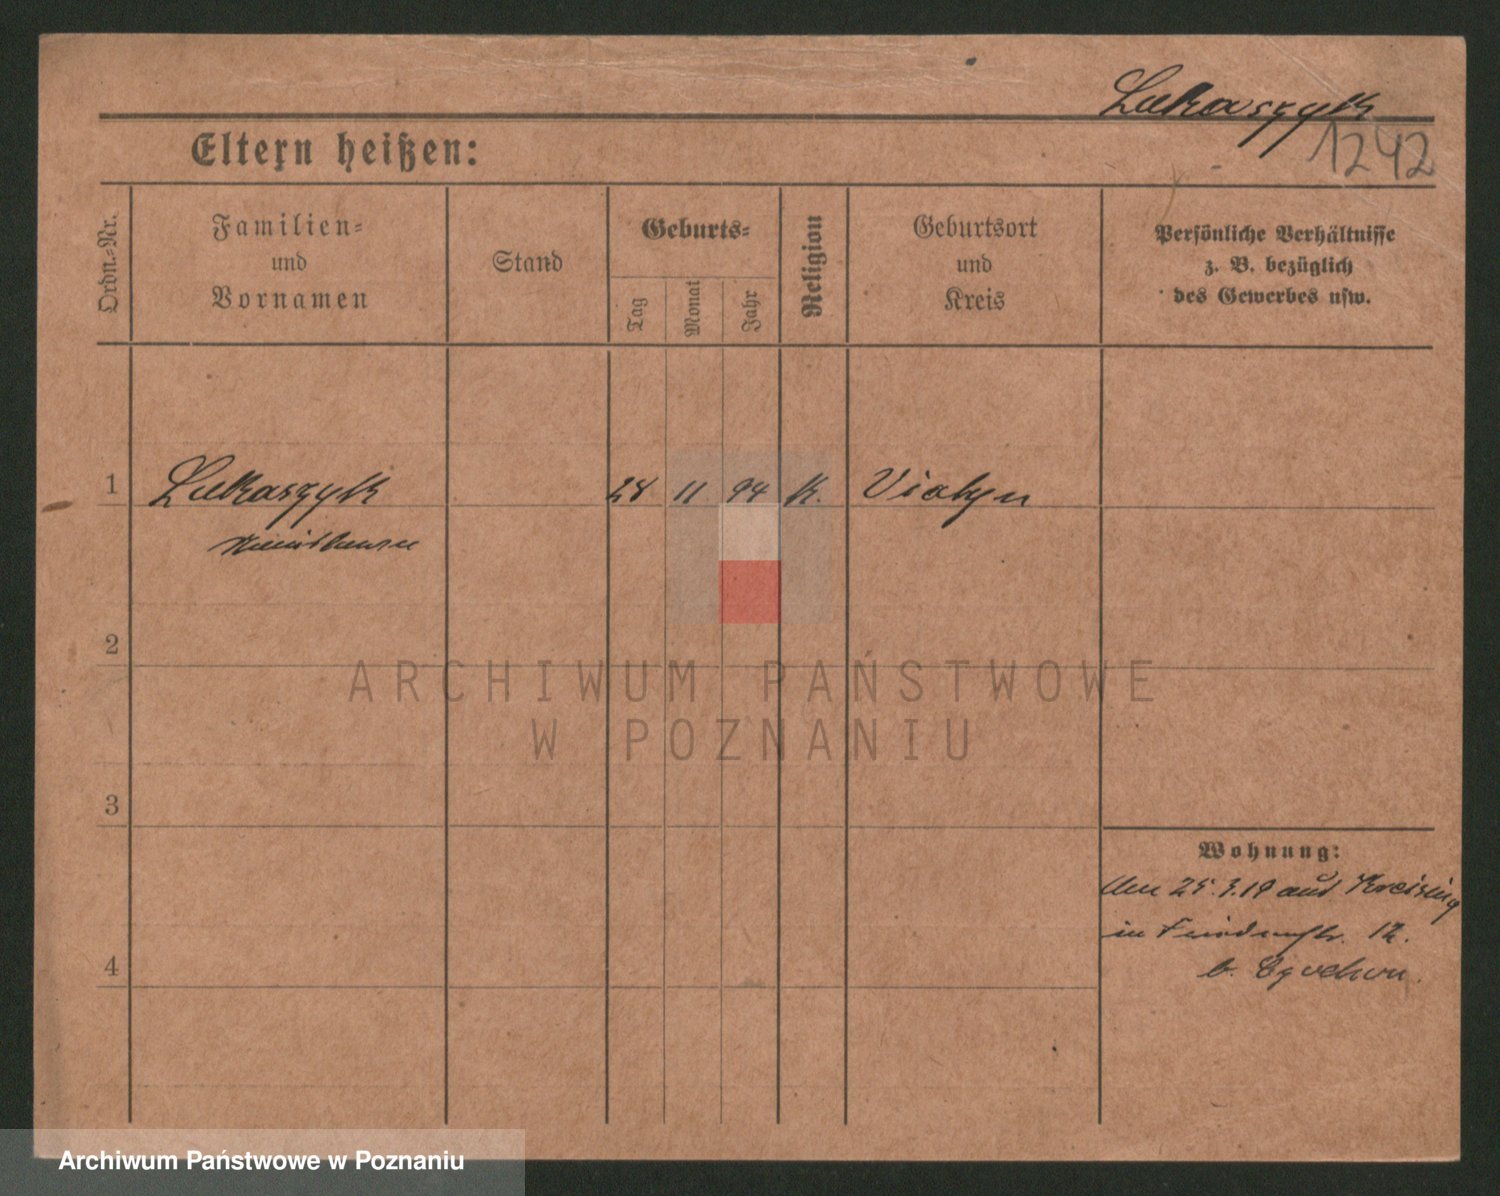 Lukaszyk
1242
Eltern heißen:
Ordn.-Nr.
Familien-
und
Vornamen
Stand
Geburts-
Tag
Monat
Jahr
Religion
Geburtsort
und
Kreis
Persönliche Verhältnisse
z. B. bezüglich
des Gewerbes usw.
1 Lukaszyk 28 11 94 k.
2
3
4
Wohnung:
Am 25.3.19 aus Kreising
in 12.
b.
ARCHIWUM PAŃSTWOWE
W POZNANIU
Archiwum Państwowe w Poznaniu